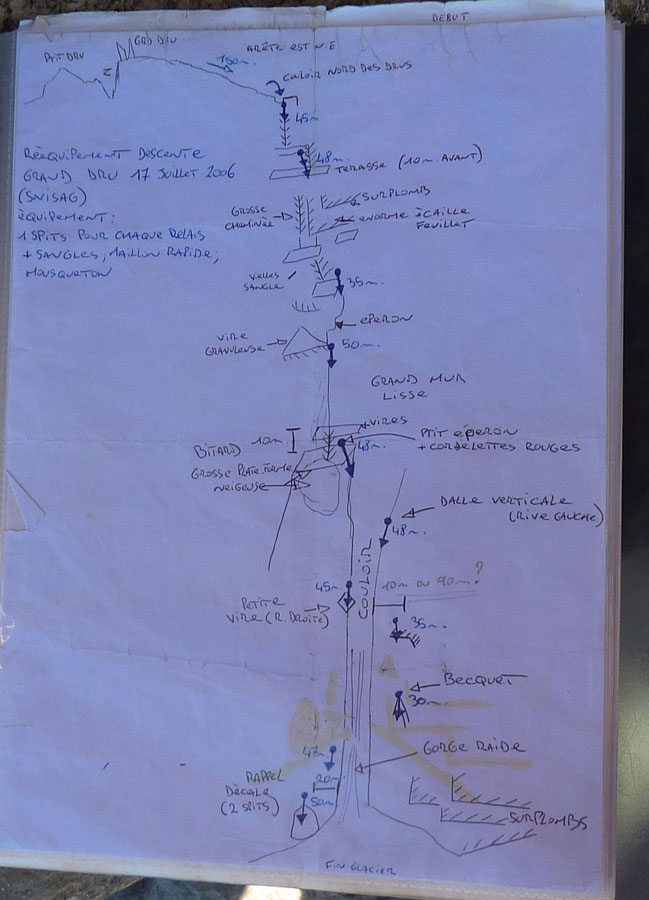 DEBUT
PTIT DRU
GRD DRU
ARÊTE EST N.E
150m
COULOIR NORD DES DRUS
45m
RÉÉQUIPEMENT DESCENTE
GRAND DRU 17 JUILLET 2006
(SNISAG)
ÉQUIPEMENT:
1 SPITS POUR CHAQUE RELAIS
+ SANGLES, MAILLON RAPIDE,
MOUSQUETON
48m
TERASSE (10m AVANT)
SURPLOMB
GROSSE
CHEMINÉE
ENORME ÉCAILLE
FEUILLET
VIELLES
SANGLE
35m
EPERON
VIRE
GRAVELEUSE
50m
GRAND MUR
LISSE
VIRES
10m
BITARD
48m
PTIT ÉPERON
+ CORDELETTES ROUGES
GROSSE PLATE FORME
NEIGEUSE
DALLE VERTICALE
(RIVE GAUCHE)
48m
COULOIR
45m
10m OU 90m?
PETITE
VIRE (R. DROITE)
35m
BECQUET
30m
47m
GORGE RAIDE
RAPPEL
DÉCALÉ
(2 SPITS)
20m
50m
SURPLOMBS
FIN GLACIER